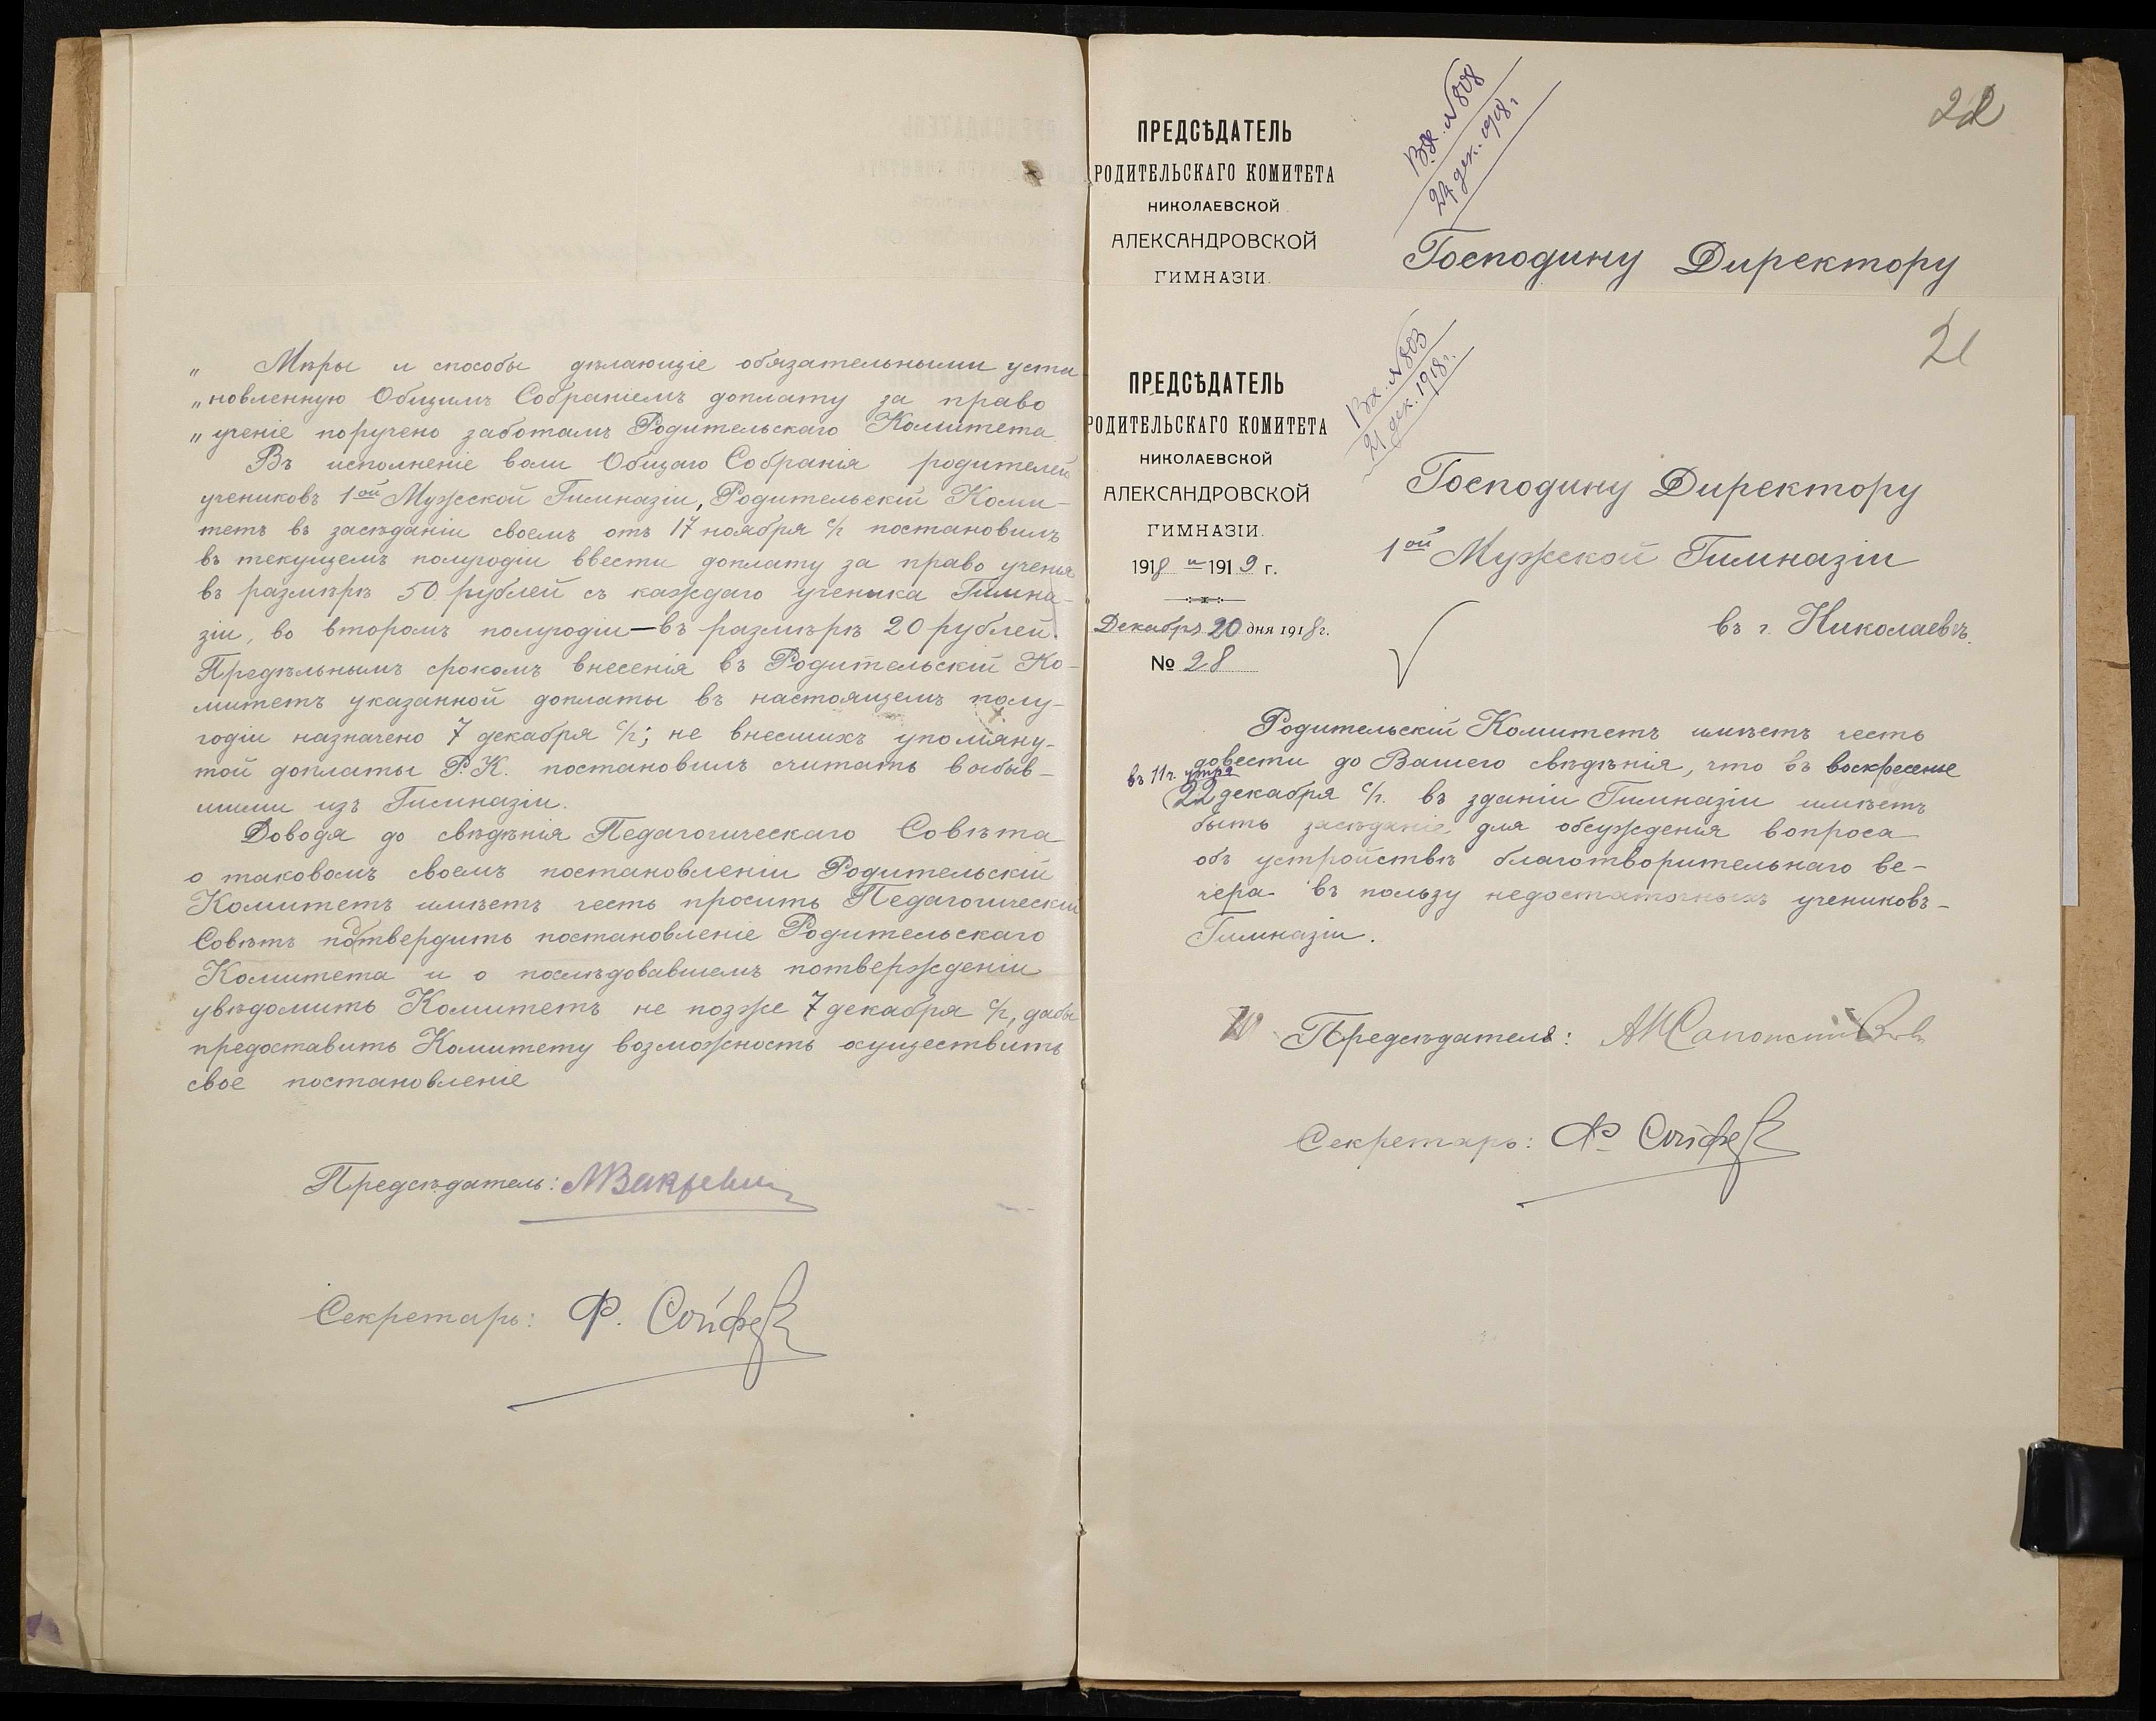 „ Мѣры и способы дѣлающіе обязательными уста
„новленную Общимъ Собраніемъ доплату за право
„ученіе поручено заботамъ Родительскаго Комитета
Въ исполненіе воли Общаго Собранія родителей
учениковъ 1ой Мужской Гимназіи, Родительскій Коми-
тетъ въ засѣданіи своемъ отъ 17 ноября с/г постановилъ
въ текущемъ полугодіи ввести доплату за право ученія
въ размѣрѣ 50 рублей съ каждаго ученика Гимна-
зіи, во второмъ полугодіи — въ размѣрѣ 20 рублей.
Предѣльнымъ срокомъ внесенія въ Родительскій Ко-
митетъ указанной доплаты въ настоящемъ полу-
годіи назначено 7 декабря с/г; не внесшихъ упомяну-
той доплаты Р. К. постановилъ считать выбыв-
шими изъ Гимназіи.
Доводя до свѣдѣнія Педагогическаго Совѣта
о таковомъ своемъ постановленіи Родительскій
Комитетъ имѣетъ честь просить Педагогическій
Совѣтъ подтвердить постановленіе Родительскаго
Комитета и о послѣдовавшемъ потвержденіи
увѣдомить Комитетъ не позже 7 декабря с/г, дабы
предоставить Комитету возможность осуществить
свое постановленіе
Предсѣдатель:
Секретарь: Ф. Сойфер
22
Вх. №808
24 дек. 1918 г.
ПРЕДСѢДАТЕЛЬ
РОДИТЕЛЬСКАГО КОМИТЕТА
НИКОЛАЕВСКОЙ
АЛЕКСАНДРОВСКОЙ
ГИМНАЗІИ.
Господину Директору
21
Вх. №803
21 дек. 1918 г.
ПРЕДСѢДАТЕЛЬ
РОДИТЕЛЬСКАГО КОМИТЕТА
НИКОЛАЕВСКОЙ
АЛЕКСАНДРОВСКОЙ
ГИМНАЗІИ.
1918 – 1919 г.
Декабря 20 дня 1918 г.
№ 28
Господину Директору
1ой Мужской Гимназіи
въ г. Николаевѣ.
Родительскій Комитетъ имѣетъ честь
довести до Вашего свѣдѣнія, что въ воскресенье
въ 11 ч. утра
22 декабря с/г. въ зданіи Гимназіи имѣетъ
быть засѣданіе для обсужденія вопроса
объ устройствѣ благотворительнаго ве-
чера въ пользу недостаточныхъ учениковъ
Гимназіи.
Предсѣдателя:
Секретарь: Ф. Сойфер